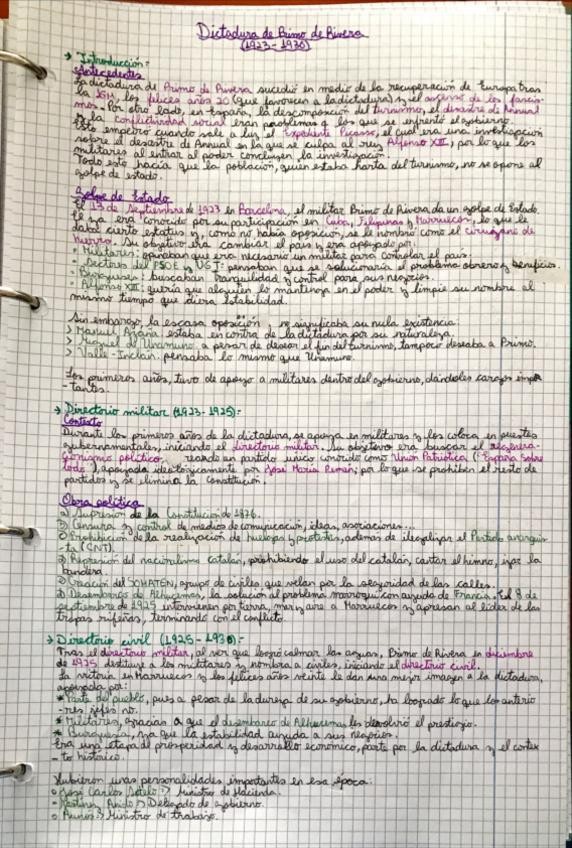 Dictadura de Primo de Rivera
(1923-1930)
→ Introducción:
Antecedentes
La dictadura de Primo de Rivera sucedió en medio de la recuperación de Europa tras
la IGM, los felices años 20 (que favorecen a la dictadura) y el ascenso de los fascis-
mos. Por otro lado, en España, la descomposición del turnismo, el desastre de Annual
y la conflictividad social eran problemas a los que se enfrentó el gobierno.
Esto empeoró cuando sale a luz el Expediente Picasso, el cual era una investigación
sobre el desastre de Annual en la que se culpa al rey Alfonso XIII, por lo que los
militares al entrar al poder concluyen la investigación.
Todo esto hacía que la población, quien estaba harta del turnismo, no se opone al
golpe de estado.
Golpe de Estado
El 13 de Septiembre de 1923 en Barcelona, el militar Primo de Rivera da un golpe de Estado.
Él ya era conocido por su participación en Cuba, Filipinas y Marruecos, lo que le
daba cierto estatus y, como no había oposición, se le nombró como el cirujano de
hierro. Su objetivo era cambiar el país y era apoyado por:
· Militares: opinaban que era necesario un militar para controlar el país.
· Sectores del PSOE y UGT: pensaban que se solucionaría el problema obrero y beneficios.
· Burguesía: buscaban tranquilidad y control para sus negocios.
· Alfonso XIII: quería que alguien lo mantenga en el poder y limpie su nombre al
mismo tiempo que diera estabilidad.
Sin embargo, la escasa oposición, no significaba su nula existencia:
> Manuel Azaña estaba en contra de la dictadura por su naturaleza.
> Miguel de Unamuno, a pesar de desear el fin del turnismo, tampoco deseaba a Primo.
> Valle-Inclán: pensaba lo mismo que Unamuno.
Los primeros años, tuvo de apoyo a militares dentro del gobierno, dándoles cargos impor
-tantes.
→ Directorio militar (1923-1925):
Contexto
Durante los primeros años de la dictadura, se apoya en militares y los coloca en puestos
gubernamentales, iniciando el directorio militar. Su objetivo era buscar el regenera-
cionismo político, creando un partido único conocido como Unión Patriótica ("España sobre
todo"), apoyada ideológicamente por José María Pemán; por lo que se prohíben el resto de
partidos y se elimina la Constitución.
Obra política
a) Supresión de la Constitución de 1876.
b) Censura y control de medios de comunicación, ideas, asociaciones...
c) Prohibición de la realización de huelgas y protestas, además de ilegalizar el Partido anarquis
-ta (CNT).
d) Represión del nacionalismo catalán, prohibiendo el uso del catalán, cantar el himno, izar la
bandera.
e) Creación del SOMATÉN, grupo de civiles que velan por la seguridad de las calles.
f) Desembarco de Alhucemas, la solución al problema marroquí con ayuda de Francia. El 8 de
septiembre de 1925 intervienen por tierra, mar y aire a Marruecos y apresan al líder de las
tropas rifeñas, terminando con el conflicto.
→ Directorio civil (1925-1930):
Tras el directorio militar, al ver que logró calmar las aguas, Primo de Rivera en diciembre
de 1925 destituye a los militares y nombra a civiles, iniciando el directorio civil.
La victoria en Marruecos y los felices años veinte le dan una mejor imagen a la dictadura,
apoyada por:
* Parte del pueblo, pues a pesar de la dureza de su gobierno, ha logrado lo que los anterio
-res jefes no.
* Militares, gracias a que el desembarco de Alhucemas les devolvió el prestigio.
* Burguesía, ya que la estabilidad ayuda a sus negocios.
Era una etapa de prosperidad y desarrollo económico, parte por la dictadura y el contex
-to histórico.
Hubieron unas personalidades importantes en esa época:
o José Carlos Sotelo → Ministro de Hacienda.
- Martínez Anido → Delegado de gobierno.
o Aunós → Ministro de trabajo.